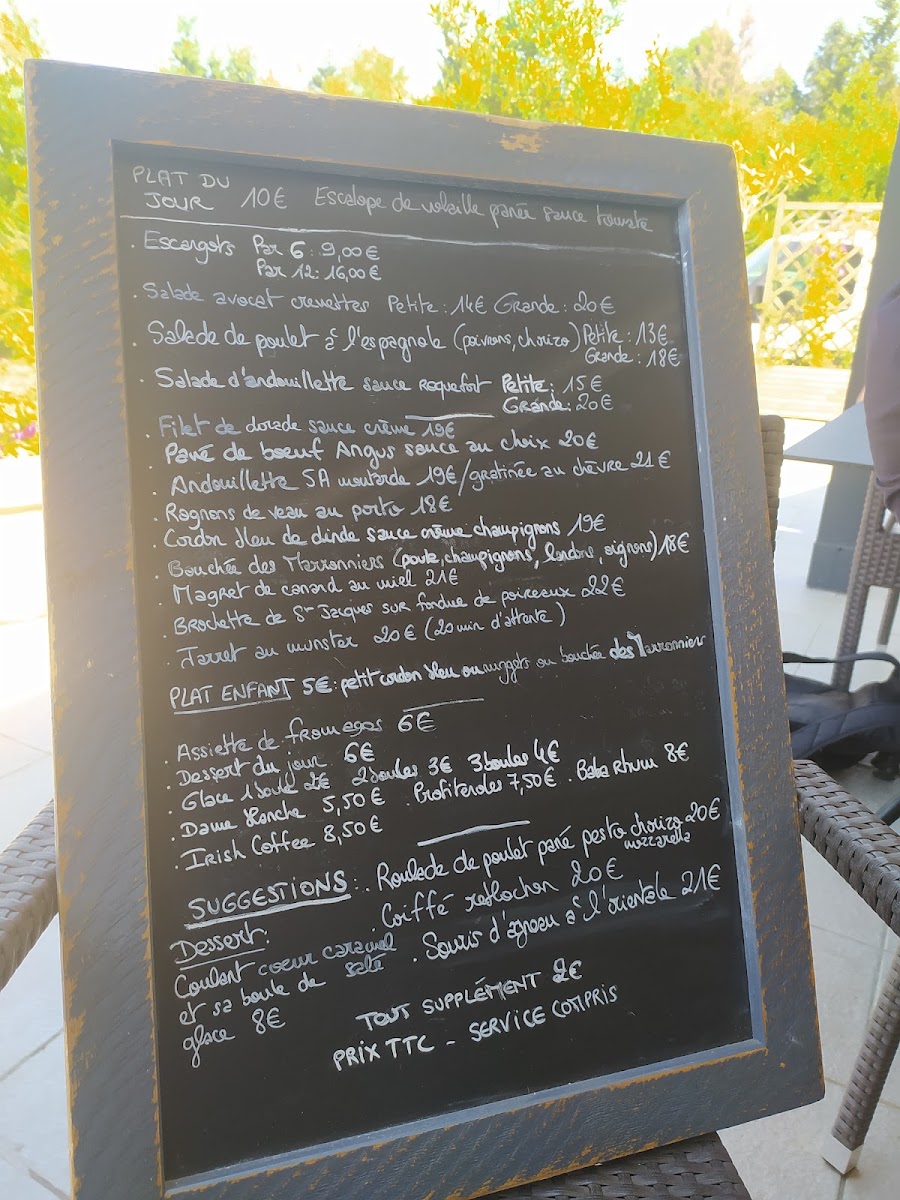 PLAT DU
JOUR 10€ Escalope de volaille panée sauce tomate
. Escargots Par 6 : 9,00€
Par 12 : 16,00€
. Salade avocat crevettes Petite : 14€ Grande : 20€
. Salade de poulet à l'espagnole (poivrons, chorizo) Petite : 13€
Grande : 18€
. Salade d'andouillette sauce roquefort Petite : 15€
Grande : 20€
. Filet de dorade sauce crème 19€
. Pavé de boeuf Angus sauce au choix 20€
. Andouillette 5A moutarde 19€/gratinée au chèvre 21€
. Rognons de veau au porto 18€
. Cordon bleu de dinde sauce crème champignons 19€
. Bouchée des Marronniers (poule, champignons, lardons, oignons) 18€
. Magret de canard au miel 21€
. Brochette de St Jacques sur fondue de poireaux 22€
. Jarret au munster 20€ (20 min d'attente)
PLAT ENFANT 5€ : petit cordon bleu ou nuggets ou bouchée des Marronniers
. Assiette de fromages 6€
. Dessert du jour 6€
. Glace 1 boule 2€ 2 boules 3€ 3 boules 4€
. Dame blanche 5,50€ . Profiteroles 7,50€ . Baba Rhum 8€
. Irish Coffee 8,50€
SUGGESTIONS : . Roulade de poulet pané pesto chorizo 20€
mozzarella
. Coiffé reblochon 20€
. Souris d'agneau à l'orientale 21€
Dessert :
Coulant coeur caramel
salé
et sa boule de
glace 8€
TOUT SUPPLÉMENT 2€
PRIX TTC - SERVICE COMPRIS